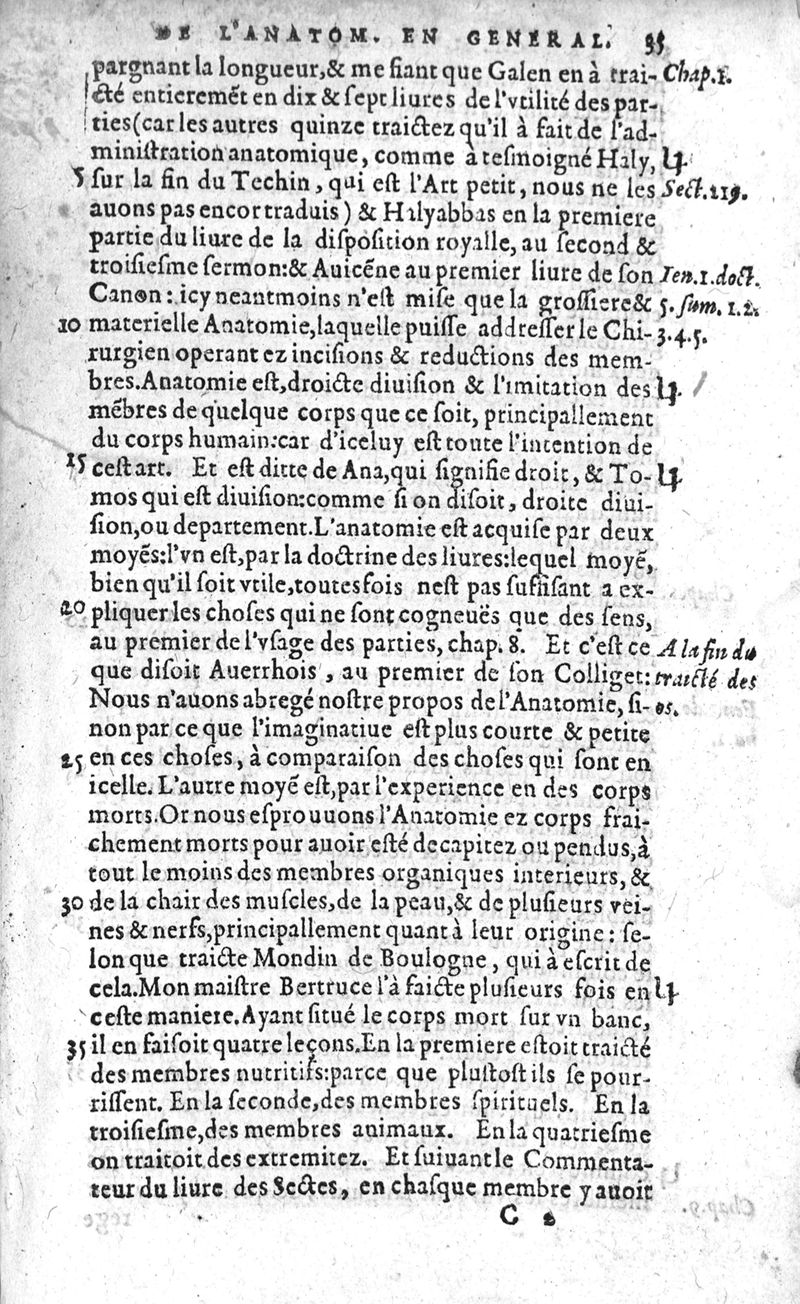 DE L'ANATOM. EN GENERAL. 35
pargnant la longueur,& me fiant que Galen en à trai- Chap.1.
cté entieremẽt en dix & sept liures de l'vtilité des par-
ties(car les autres quinze traictez qu'il à fait de l'ad-
ministration anatomique, comme à tesmoigné Haly,
5 sur la fin du Techin, qui est l'Art petit, nous ne les Sect.119.
auons pas encor traduis) & Halyabbas en la premiere
partie du liure de la disposition royalle, au second &
troisiesme sermon:& Auicẽne au premier liure de son Fen.1.doct.
Canon: icy neantmoins n'est mise que la grossiere& 5. sum. 1.2.
10 materielle Anatomie,laquelle puisse addresser le Chi- 3.4.5.
rurgien operant ez incisions & reductions des mem-
bres.Anatomie est,droicte diuision & l'imitation des
mẽbres de quelque corps que ce soit, principallement
du corps humain:car d'iceluy est toute l'intention de
15 cest art. Et est ditte de Ana,qui signifie droit, & To-
mos qui est diuision:comme si on disoit, droite diui-
sion,ou departement.L'anatomie est acquise par deux
moyẽs:l'vn est,par la doctrine des liures:lequel moyẽ,
bien qu'il soit vtile,toutesfois nest pas suffisant a ex-
20 pliquer les choses qui ne sont cogneuës que des sens,
au premier de l'vsage des parties, chap. 8. Et c'est ce A la fin du
que disoit Auerrhois , au premier de son Colliget: traicté des
Nous n'auons abregé nostre propos de l'Anatomie, si- os.
non par ce que l'imaginatiue est plus courte & petite
25 en ces choses, à comparaison des choses qui sont en
icelle. L'autre moyẽ est,par l'experience en des corps
morts.Or nous esprouuons l'Anatomie ez corps frai-
chement morts pour auoir esté decapitez ou pendus,à
tout le moins des membres organiques interieurs, &
30 de la chair des muscles,de la peau,& de plusieurs vei-
nes & nerfs,principallement quant à leur origine: se-
lon que traicte Mondin de Boulogne, qui à escrit de
cela.Mon maistre Bertruce l'à faicte plusieurs fois en
ceste maniere.Ayant situé le corps mort sur vn banc,
35 il en faisoit quatre leçons.En la premiere estoit traicté
des membres nutritifs:parce que plustost ils se pour-
rissent. En la seconde,des membres spirituels. En la
troisiesme,des membres animaux. En la quatriesme
on traitoit des extremitez. Et suiuant le Commenta-
teur du liure des Sectes, en chasque membre y auoit
C 2